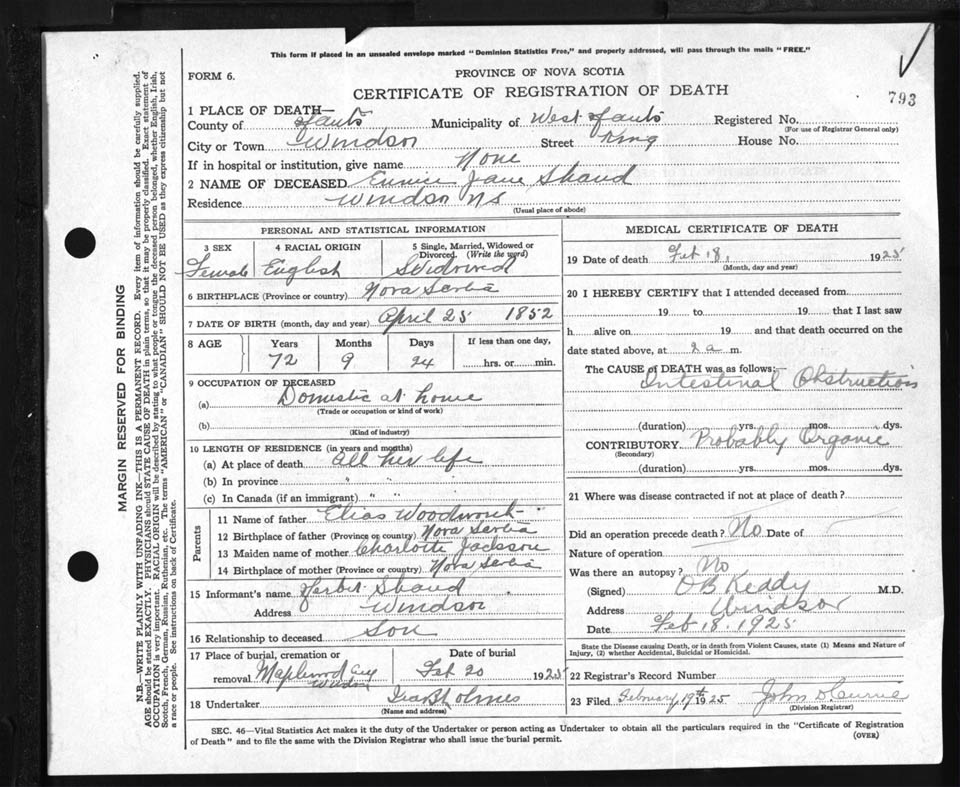 This form if placed in an unsealed envelope marked "Dominion Statistics Free," and properly addressed, will pass through the mails "FREE."
FORM 6.
PROVINCE OF NOVA SCOTIA
CERTIFICATE OF REGISTRATION OF DEATH
793
1 PLACE OF DEATH—
County of Hants Municipality of West Hants Registered No.
(For use of Registrar General only)
City or Town Windsor Street King House No.
If in hospital or institution, give name None
2 NAME OF DECEASED Eunice Jane Shand
Residence Windsor NS
(Usual place of abode)
PERSONAL AND STATISTICAL INFORMATION
3 SEX 4 RACIAL ORIGIN 5 Single, Married, Widowed or Divorced. (Write the word)
Female English Widowed
6 BIRTHPLACE (Province or country) Nova Scotia
7 DATE OF BIRTH (month, day and year) April 25 1852
8 AGE Years Months Days If less than one day,
72 9 24 hrs. or min.
9 OCCUPATION OF DECEASED
(a) Domestic at home
(Trade or occupation or kind of work)
(b)
(Kind of industry)
10 LENGTH OF RESIDENCE (in years and months)
(a) At place of death all her life
(b) In province " " "
(c) In Canada (if an immigrant) " "
Parents
11 Name of father Elias Woodworth
12 Birthplace of father (Province or country) Nova Scotia
13 Maiden name of mother Charlotte Jackson
14 Birthplace of mother (Province or country) Nova Scotia
15 Informant's name Herbt Shand
Address Windsor
16 Relationship to deceased Son
17 Place of burial, cremation or removal Date of burial
Maplewood Cey Windsor Feb 20 1925
18 Undertaker Ira B Holmes
(Name and address)
MEDICAL CERTIFICATE OF DEATH
19 Date of death Feb 18, 1925
(Month, day and year)
20 I HEREBY CERTIFY that I attended deceased from
19 to 19 that I last saw
h alive on 19 and that death occurred on
date stated above, at 2 a m.
The CAUSE of DEATH was as follows:—
Intestinal Obstruction
(duration) yrs. mos. dys.
CONTRIBUTORY Probably Organic
(Secondary)
(duration) yrs. mos. dys.
21 Where was disease contracted if not at place of death?
Did an operation precede death? No Date of
Nature of operation
Was there an autopsy? No
(Signed) O B Keddy M.D.
Address Windsor
Date Feb 18, 1925
State the Disease causing Death, or in death from Violent Causes, state (1) Means and Nature of Injury, (2) whether Accidental, Suicidal or Homicidal.
22 Registrar's Record Number
23 Filed February 19th 1925 John D Currie
(Division Registrar)
SEC. 46—Vital Statistics Act makes it the duty of the Undertaker or person acting as Undertaker to obtain all the particulars required in the "Certificate of Registration
of Death" and to file the same with the Division Registrar who shall issue the burial permit.
(OVER)
MARGIN RESERVED FOR BINDING
N.B.—WRITE PLAINLY WITH UNFADING INK—THIS IS A PERMANENT RECORD. Every item of information should be carefully supplied.
AGE should be stated EXACTLY. PHYSICIANS should STATE CAUSE OF DEATH in plain terms, so that it may be properly classified. Exact statement of
OCCUPATION is very important. RACIAL ORIGIN will be described by stating to what people or tongue the deceased person belonged, whether English, Irish,
Scotch, French, German, Russian, Ruthenian, etc. The terms "AMERICAN" or "CANADIAN" SHOULD NOT BE USED as they express citizenship but not
a race or people. See instructions on back of Certificate.